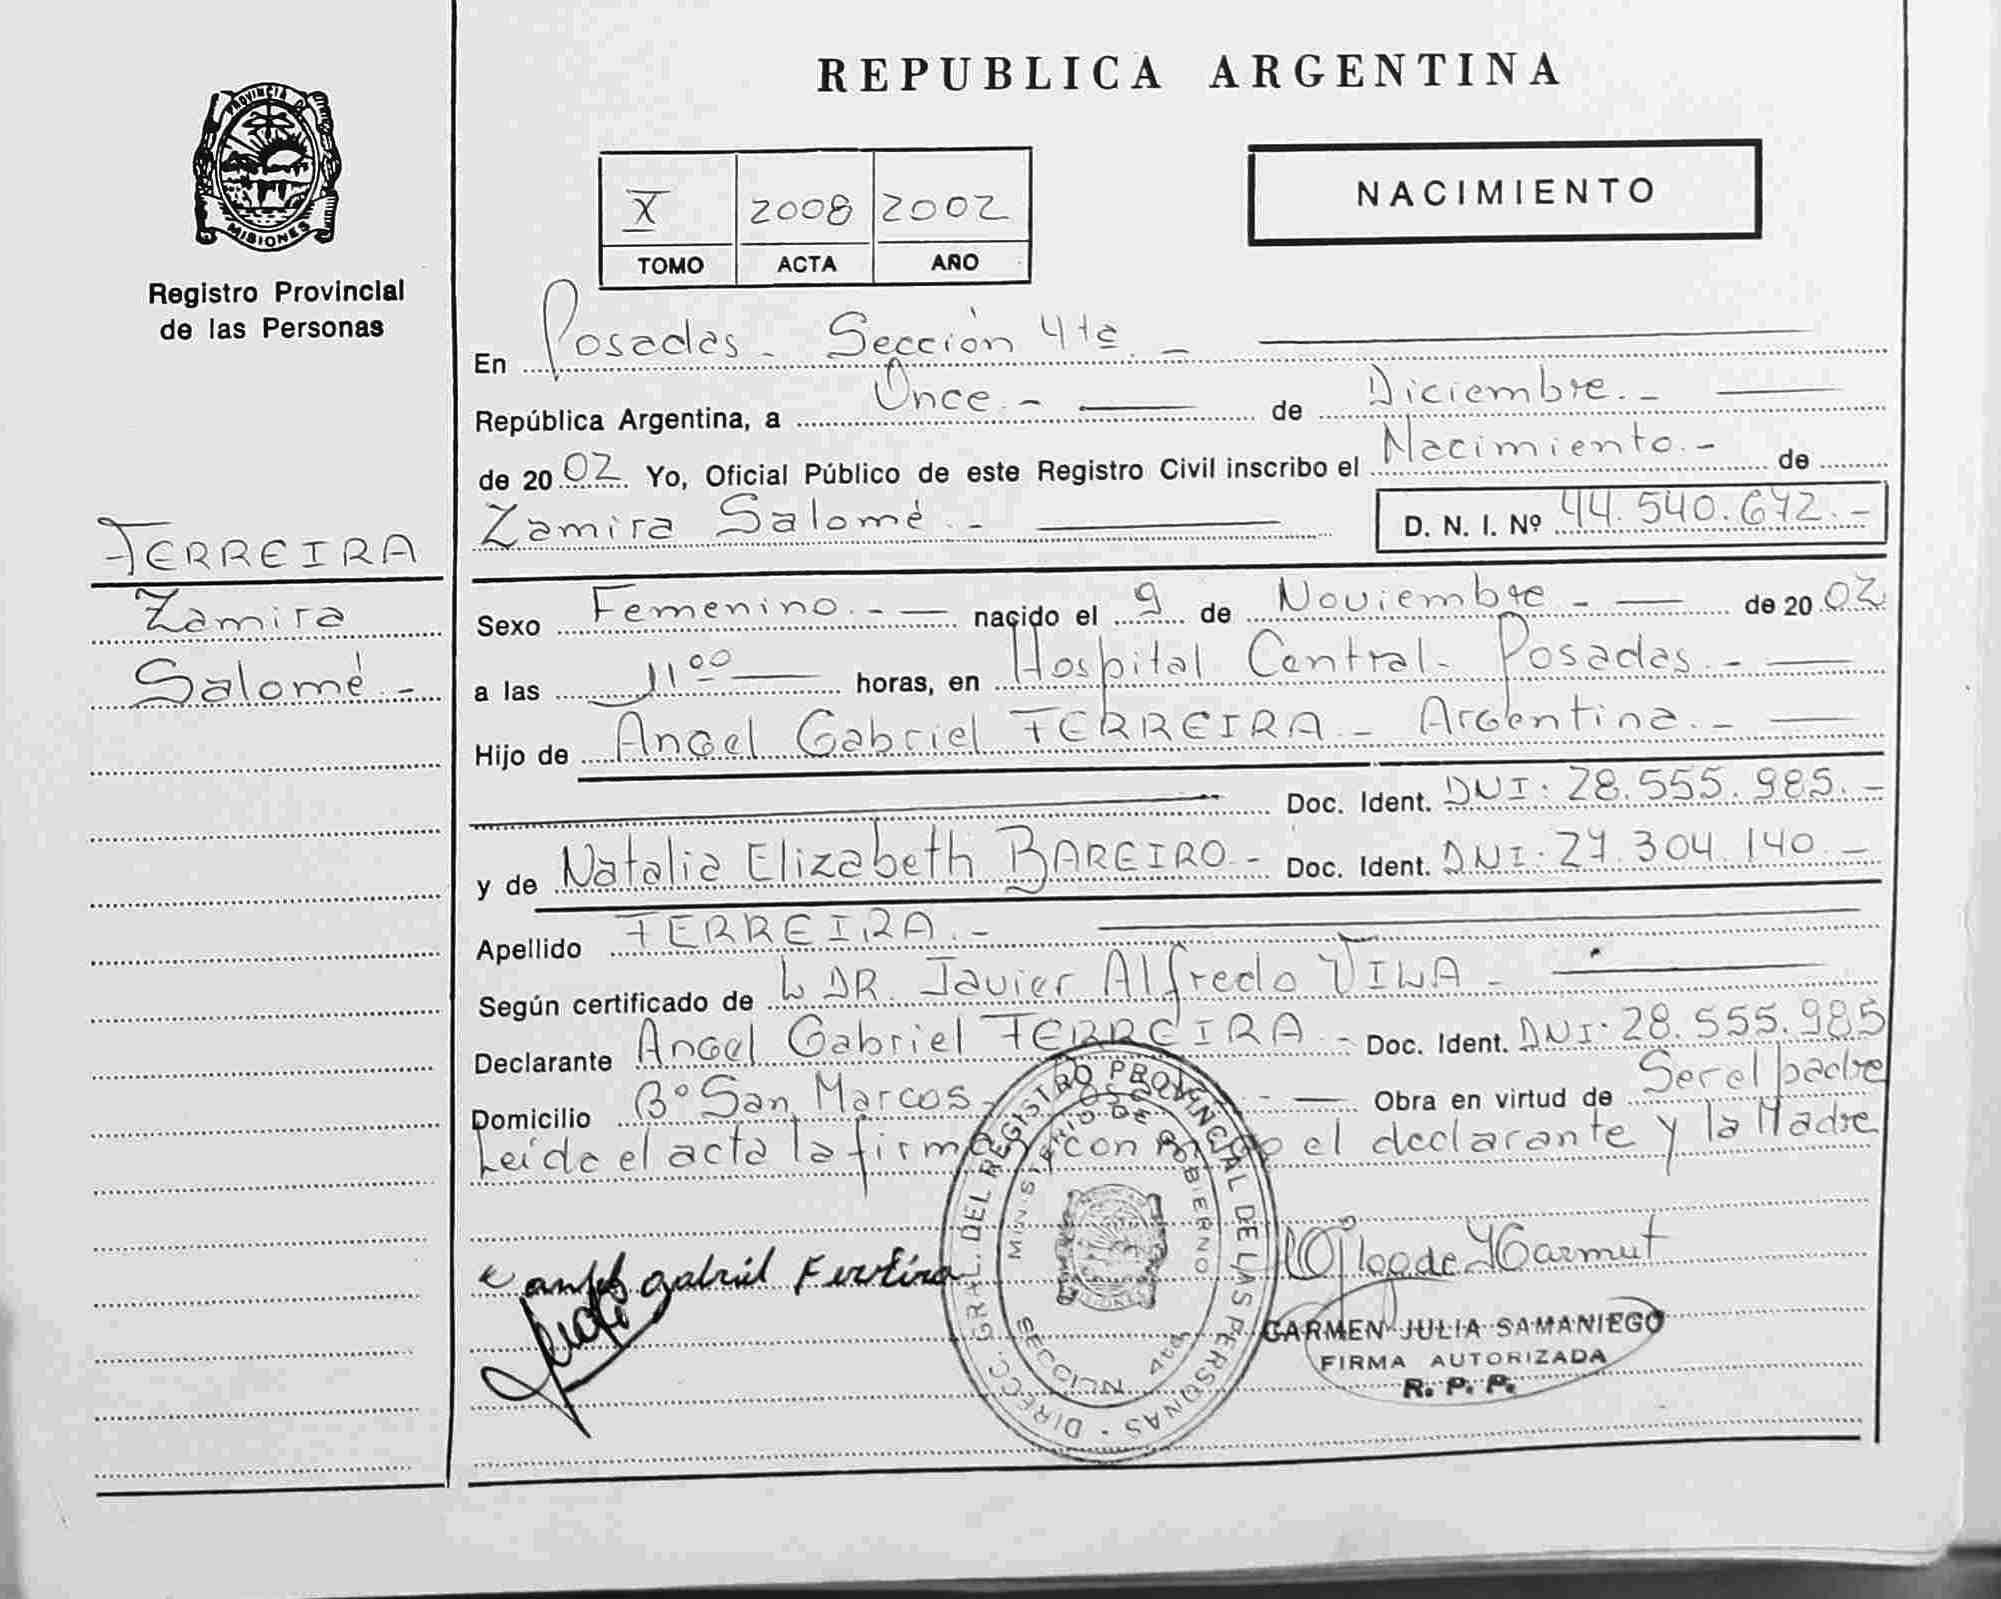 REPUBLICA ARGENTINA
PROVINCIA DE
MISIONES
Registro Provincial
de las Personas
X 2008 2002
TOMO ACTA AÑO
NACIMIENTO
FERREIRA
Zamira
Salomé.-
En Posadas.- Sección 4ta.-
República Argentina, a Once.- de Diciembre.-
de 2002 Yo, Oficial Público de este Registro Civil inscribo el Nacimiento.- de
Zamira Salomé.- D. N. I. Nº 44.540.672.-
Sexo Femenino.- nacido el 9 de Noviembre - de 2002
a las 11 00 horas, en Hospital Central- Posadas.-
Hijo de Angel Gabriel FERREIRA.- Argentina.-
Doc. Ident. DNI: 28.555.985.-
y de Natalia Elizabeth BAREIRO.- Doc. Ident. DNI: 27.304.140.-
Apellido FERREIRA.-
Según certificado de DR. Javier Alfredo VILA -
Declarante Angel Gabriel FERREIRA - Doc. Ident. DNI: 28.555.985
Domicilio Bº San Marcos- Obra en virtud de Ser el padre
Leída el acta la firman con el declarante y la Madre
angel gabriel Ferreira
DIRECC. GRAL. DEL REGISTRO PROVINCIAL DE LAS PERSONAS
MINISTERIO DE GOBIERNO
SECCION 4ta
CARMEN JULIA SAMANIEGO
FIRMA AUTORIZADA
R. P. P.